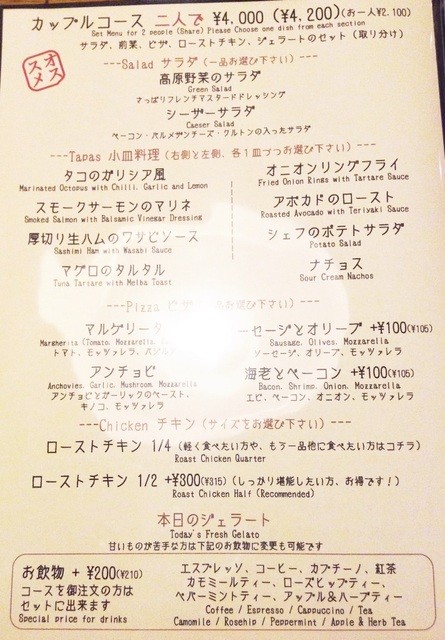 カップルコース 二人で ¥4,000 (¥4,200)(お一人¥2,100)
Set Menu for 2 people (Share) Please Choose one dish from each section
サラダ、前菜、ピザ、ローストチキン、ジェラートのセット (取り分け)
オススメ
---Salad サラダ (一品お選び下さい)---
高原野菜のサラダ
Green Salad
さっぱりフレンチマスタードドレッシング
シーザーサラダ
Caeser Salad
ベーコン・パルメザンチーズ・クルトンの入ったサラダ
---Tapas 小皿料理 (右側と左側、各1皿づつお選び下さい)---
タコのガリシア風
Marinated Octopus with Chilli, Garlic and Lemon
スモークサーモンのマリネ
Smoked Salmon with Balsamic Vinegar Dressing
厚切り生ハムのワサビソース
Sashimi Ham with Wasabi Sauce
マグロのタルタル
Tuna Tartare with Melba Toast
オニオンリングフライ
Fried Onion Rings with Tartare Sauce
アボカドのロースト
Roasted Avocado with Teriyaki Sauce
シェフのポテトサラダ
Potato Salad
ナチョス
Sour Cream Nachos
---Pizza ピザ お選び下さい)---
マルゲリータ
Margherita (Tomato, Mozzarella,
トマト、モッツァレラ、
アンチョビ
Anchovies, Garlic, Mushroom, Mozzarella
アンチョビとガーリックのペースト、
キノコ、モッツァレラ
ーセージとオリーブ +¥100(¥105)
Sausage, Olives, Mozzarella
ソーセージ、オリーブ、モッツァレラ
海老とベーコン +¥100(¥105)
Bacon, Shrimp, Onion, Mozzarella
エビ、ベーコン、オニオン、モッツァレラ
---Chicken チキン (サイズをお選び下さい)---
ローストチキン 1/4 (軽く食べたい方や、もう一品他に食べたい方はコチラ)
Roast Chicken Quarter
ローストチキン 1/2 +¥300(¥315) (しっかり堪能したい方、お得です！)
Roast Chicken Half (Recommended)
本日のジェラート
Today's Fresh Gelato
甘いものが苦手な方は下記のお飲物に変更も可能です
お飲物 + ¥200(¥210)
コースを御注文の方は
セットに出来ます
Special price for drinks
エスプレッソ、コーヒー、カプチーノ、紅茶
カモミールティー、ローズヒップティー、
ペパーミントティー、アップル&ハーブティー
Coffee / Espresso / Cappuccino / Tea
Camomile / Rosehip / Peppermint / Apple & Herb Tea